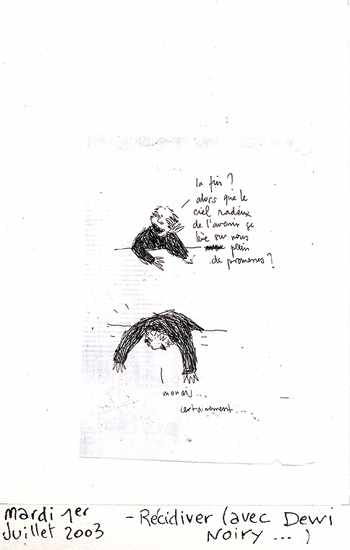 la fin ?
alors que le
ciel radieux
de l'avenir se
lève sur nous
plein
de promesses ?
mouais...
certainement...
mardi 1er
Juillet 2003
- Récidiver (avec Dewi
Noiry ... )